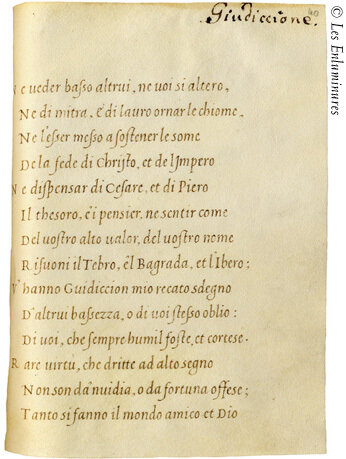 Giudiccione.
40
Ne ueder basso altrui, ne uoi si altero,
Ne di mitra, è di lauro ornar le chiome,
Ne l'esser messo a sostener le some
De la fede di Christo, et de l'Impero
Ne dispensar di Cesare, et di Piero
Il thesoro, e i pensier, ne sentir come
Del uostro alto ualor, del uostro nome
Risuoni il Tebro, e'l Bagrada, et l'Ibero;
V'hanno Guidiccion mio recato sdegno
D'altrui bassezza, o di uoi stesso oblio:
Di uoi, che sempre humil foste, et cortese.
Rare uirtù, che dritte ad alto segno
Non son da'nuidia, o da fortuna offese;
Tanto si fanno il mondo amico et Dio
© Les Enluminures